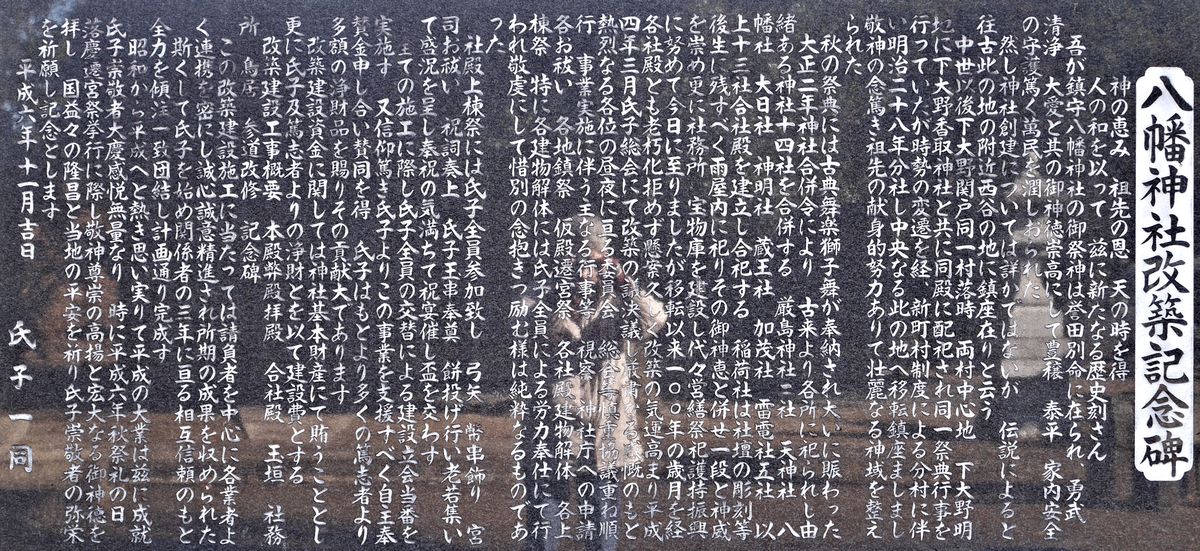 八幡神社改築記念碑
神の恵み　祖先の恩　天の時を得
人の和を以って　茲に新たなる歴史刻さん
吾が鎮守八幡神社の御祭神は誉田別命に在られ、勇武
清浄　大愛と其の御神徳崇高にして豊穣　泰平　家内安全
の守護篤く萬民を潤しおられた
然し神社創建については詳かではないが　伝説によると
往古此の地の附近西谷の地に鎮座在りと云う
中世以後下大野関戸同一村落時　両村中心地　下大野明
地に下大野香取神社と共に同殿に配祀され同一祭典行事を
行っていたが時勢の変遷を経　新町村制度による分村に伴
い明治二十八年分社し中央なる此の地へ移転鎮座まします
敬神の念篤き祖先の献身的努力ありて壮麗なる神域を整え
られた
秋の祭典には古典舞楽獅子舞が奉納され大いに賑わった
大正二年神社合併令により　古来より各所に祀られし由
緒ある神社十四社を合併する　厳島神社二社　天神社　八
幡社　大日社　神明社　蔵王社　加茂社　雷電社五社　以
上十三社合社殿を建立し合祀する　稲荷社は社壇の彫刻等
後生に残すべく雨屋内に祀りその御神恵と併せ一段と神威
を崇め更に社務所　宝物庫を建設し代々営繕祭祀護持振興
に努めて今日に至りましたが移転以来一〇〇年の歳月を経
各社殿とも老朽化拒めず懸案久しく改築の気運高まり平成
四年三月氏子総会にて改築の議決議し厳粛のもと
熱烈なる各位の昼夜に亘る委員会　総会等慎重協議重ね順
行　事業実施に伴う主なる行事等　視察　神社庁への申請
各お祓い　各地鎮祭　仮殿遷宮祭　各社殿建物解体　各上
棟祭　特に各建物解体には氏子全員による労力奉仕にて行
われ敬虔にして惜別の念抱きつ励む様は純粋なるものであ
った
社殿上棟祭には氏子全員参加致し　弓矢　幣串飾り　宮
司お祓い　祝詞奏上　氏子玉串奉奠　餅投げ行い老若集い
て盛況を呈し奉祝の気満ちて祝宴催し盃を交わす
全ての施工に際し氏子全員の交替による建設立会当番を
実施す　又信仰篤き氏子よりこの事業を支援すべく自主奉
賛金申し合い賛同を得　氏子はもとより多くの篤志者より
多額の浄財品を賜りその貢献大であります
改築建設資金に関しては神社基本財産にて賄うこととし
更に氏子及篤志者よりの浄財とを以て建設費とする
改築建設工事概要　本殿幣殿拝殿　合社殿　玉垣　社務
所　鳥居　参道改修　記念碑
この改築建設施工に当たっては請負者を中心に各業者よ
く連携を密にし誠心誠意精進され所期の成果を収められた
斯くして氏子を始め関係者の三年に亘る相互信頼のもと
全力を傾注一致団結し計画通り完成す
昭和から平成へと熱き思い実りて平成の大業は茲に成就
氏子崇敬者大慶感悦無量なり　時に平成六年秋祭礼の日
落慶遷宮祭挙行に際し敬神尊崇の高揚と宏大なる御神徳を
拝し　国益々の隆昌と当地の平安を祈り氏子崇敬者の弥栄
を祈願し記念とします
平成六年十一月吉日
氏子一同